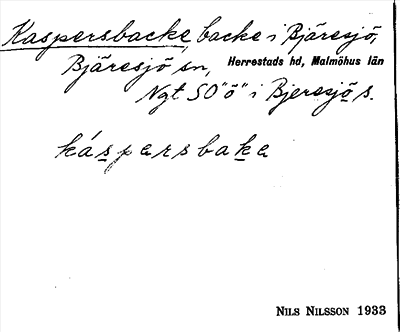 Kaspersbacke, backe i Bjäresjö,
Bjäresjö sn, Herrestads hd, Malmöhus län
Ngt SO "ö" i Bjeresjö s.
káspersbake
NILS NILSSON 1933